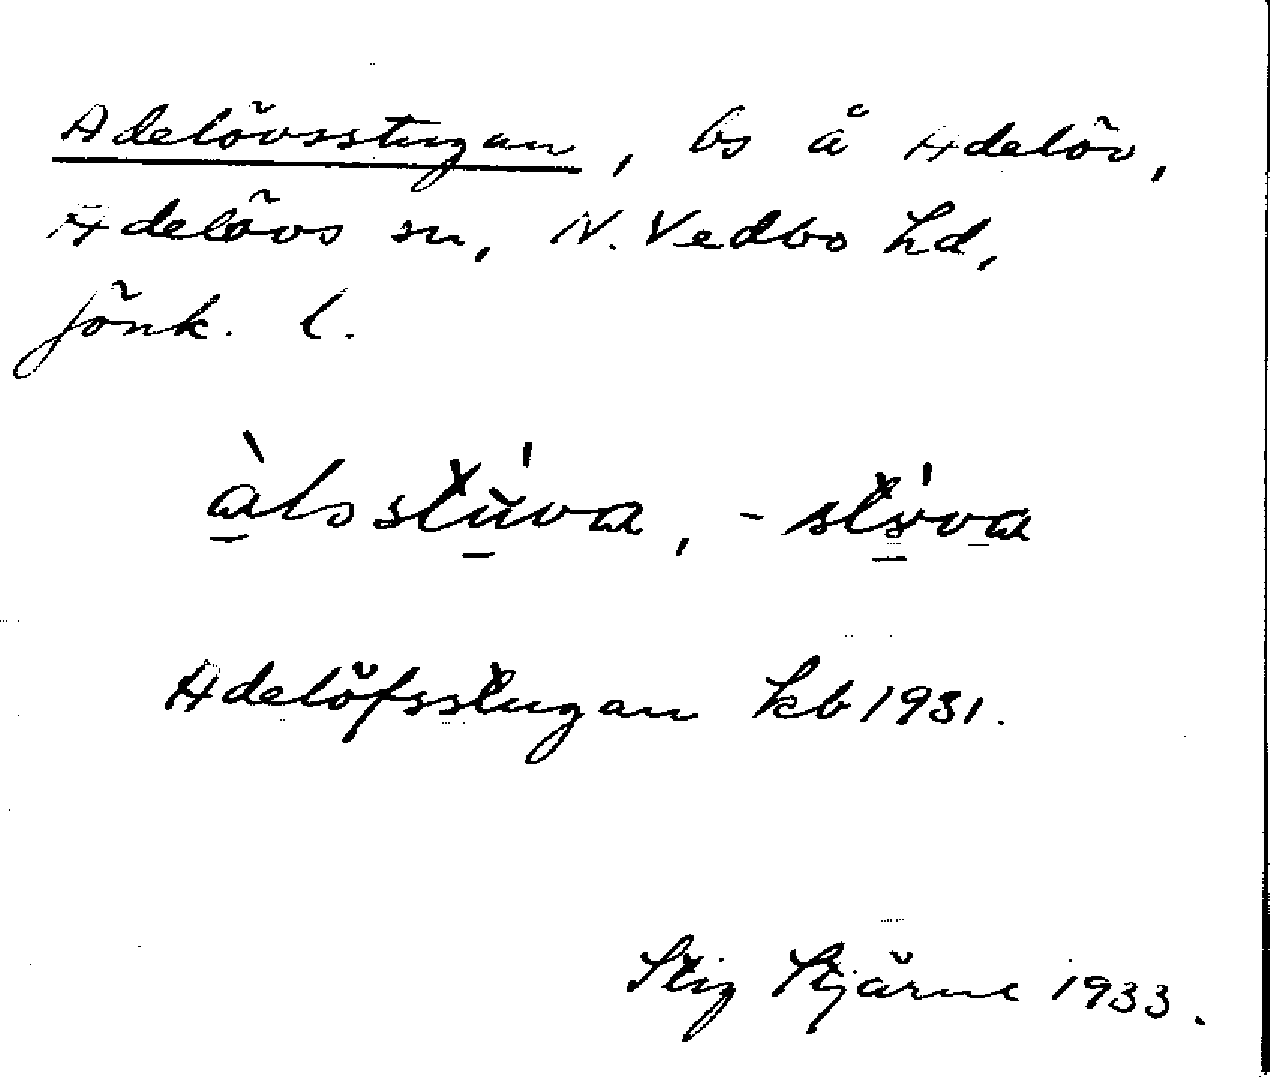 Adelövsstugan, bs å Adelöv,
Adelövs sn, N. Vedbo hd,
Jönk. l.
àlsstúva, -stova
Adelöfsstugan kb 1931.
Stig Stjärne 1933.